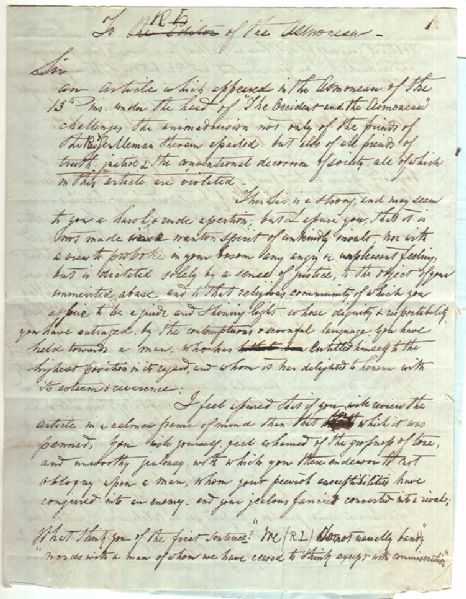 R L 1
To the Editor of the Asmonean
Sir
an article which appeared in the Asmonean of the
13th ins. under the head of "The Occident and the Asmonean"
challenges the animadversion not only of the friends of
the Revd Gentleman therein assailed but also of all friends of
truth, justice & the conventional decorum of society all of which
in this article are violated.
This Sir is a strong, and may seem
to you a harsh & rude assertion; but I assure you, that it is
not made in a wanton spirit of unkindly, nor with
a view to provoke in your bosom any angry or unpleasant feeling
but is dictated solely by a sense of justice, to the object of your
unmerited abuse and to that religious community of which you
aspire to be a guide and shining light - whose dignity & respectability
you have outraged by the contemptuous & scornful language you have
held towards a man, who has entitled himself to the
highest position in its regard, and whom it has delighted to honour with
its esteem & reverence.
I feel assured that if you will review the
article in a calmer frame of mind than that in which it was
penned, you yourself, feel ashamed of the grossness of tone,
and unworthy jealousy with which you there endeavor to cast
obloquy upon a man, whom your peevish susceptibilities have
conjured into an enemy - and your jealous fancies converted into a rival;
What think you of the first sentence? "We (R L) do not usually bandy
"words with a man of whom we have ceased to think, except with commiseration"